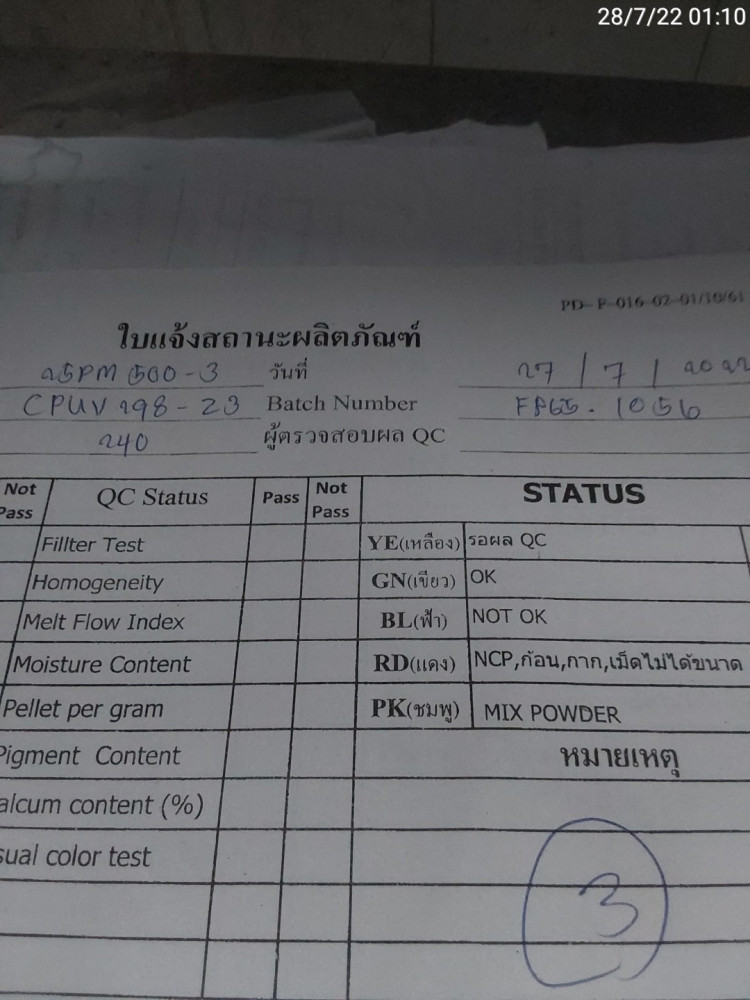 28/7/22 01:10
PD-P-016-02-01/10/61
ใบแจ้งสถานะผลิตภัณฑ์
25PM 500-3 วันที่ 27 / 7 / 2022
CPUV 298 - 23 Batch Number FP65. 1056
240 ผู้ตรวจสอบผล QC
Not Pass QC Status Pass Not Pass STATUS
Fillter Test YE(เหลือง) รอผล QC
Homogeneity GN(เขียว) OK
Melt Flow Index BL(ฟ้า) NOT OK
Moisture Content RD(แดง) NCP,ก้อน,กาก,เม็ดไม่ได้ขนาด
Pellet per gram PK(ชมพู) MIX POWDER
Pigment Content หมายเหตุ
alcum content (%)
sual color test
3